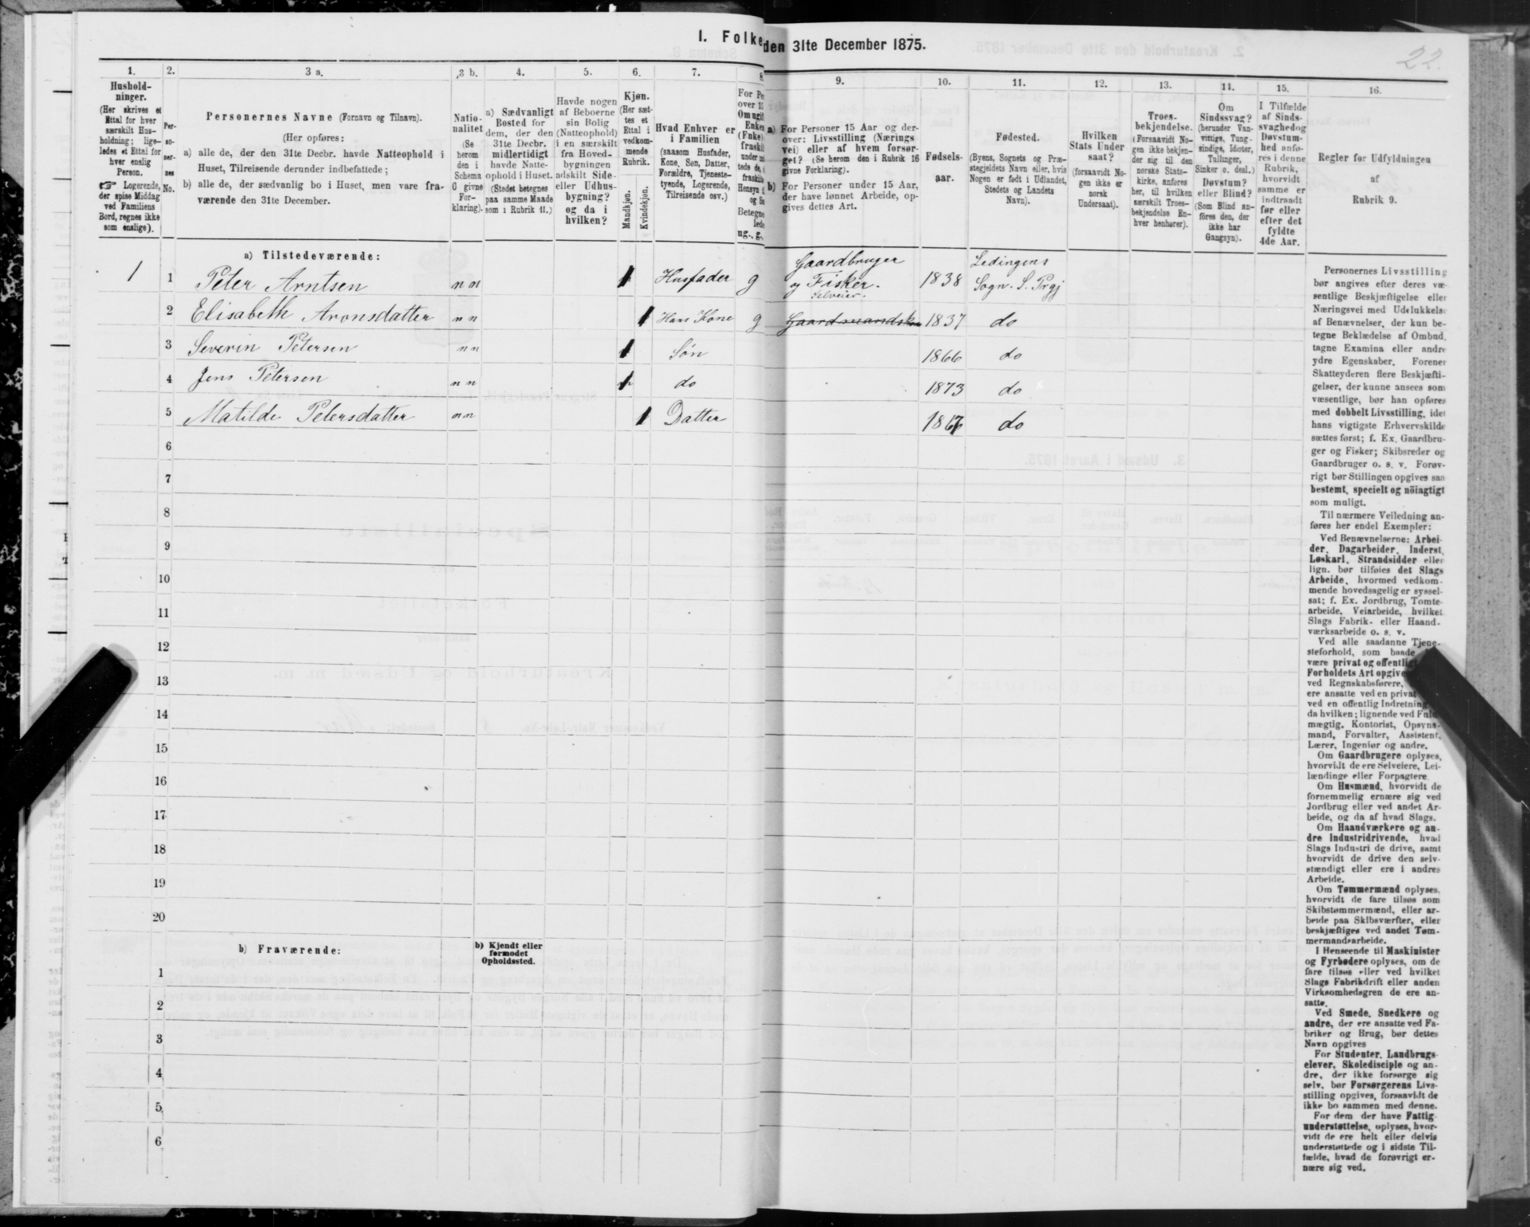 I. Folke
den 31te December 1875.
22.
1.
Hushold-
ninger.
(Her skrives et
Ettal for hver
særskilt Hus-
holdning; lige-
ledes et Ettal for
hver enslig
Person.
Logerende,
der spise Middag
ved Familiens
Bord, regnes ikke
som enslige).
2.
Per-
so-
ner-
nes
No.
3 a.
Personernes Navne (Fornavn og Tilnavn).
(Her opføres:
a) alle de, der den 31te Decbr. havde Natteophold i
Huset, Tilreisende derunder indbefattede;
b) alle de, der sædvanlig bo i Huset, men vare fra-
værende den 31te December.
3 b.
Natio-
nalitet
(Se
herom
den i
Schema
6 givne
For-
klaring).
4.
a) Sædvanligt
Bosted for
dem, der den
31te Decbr.
midlertidigt
havde Natte-
ophold i Huset.
(Stedet betegnes
paa samme Maade
som i Rubrik 11.)
5.
Havde nogen
af Beboerne
sin Bolig
(Natteophold)
i en særskilt
fra Hoved-
bygningen
adskilt Side-
eller Udhus-
bygning?
og da i
hvilken?
6.
Kjøn.
(Her sæt-
tes et
Ettal i
vedkom-
mende
Rubrik.
Mandkjøn.
Kvindekjøn.
7.
Hvad Enhver er
i Familien
(saasom Husfader,
Kone, Søn, Datter,
Forældre, Tjeneste-
tyende, Logerende,
Tilreisende osv.)
8.
ug., g.,
9.
a) For Personer 15 Aar og der-
over: Livsstilling (Nærings
vei) eller af hvem forsør-
get? (Se herom den i Rubrik 16
givne Forklaring).
b) For Personer under 15 Aar,
der have lønnet Arbeide, op-
gives dettes Art.
10.
Fødsels-
aar.
11.
Fødested.
(Byens, Sognets og Præ-
stegjeldets Navn eller, hvis
Nogen er født i Udlandet,
Stedets og Landets
Navn).
12.
Hvilken
Stats Under
saat?
(forsaavidt No-
gen ikke er
norsk
Undersaat).
13.
Troes-
bekjendelse.
(Forsaavidt No-
gen ikke bekjen-
der sig til den
norske Stats-
kirke, anføres
her, til hvilken
særskilt Troes-
bekjendelse En-
hver henhører).
14.
Om
Sindssvag?
(herunder Van-
vittige, Tung-
sindige, Idioter,
Tullinger,
Sinker o. desl.)
Døvstum?
eller Blind?
(Som Blind an-
føres den, der
ikke har
Gangsyn).
15.
I Tilfælde
af Sinds-
svaghedog
Døvstum-
hed anfø-
res i denne
Rubrik,
hvorvidt
samme er
indtraadt
før eller
efter det
fyldte
4de Aar.
16.
Regler for Udfyldningen
af
Rubrik 9.
a) Tilstedeværende:
1 1 Peter Arntsen n n 1 Husfader g Gaardbruger
og Fisker.
Selveier. 1838 Lødingens
Sogn. S. Prgj
2 Elisabeth Aronsdatter n n 1 Hans Kone g 1837 do
3 Severin Petersen n n 1 Søn 1866 do
4 Jens Petersen n n 1 do 1873 do
5 Matilde Petersdatter n n 1 Datter 1867 do
6
7
8
9
10
11
12
13
14
15
16
17
18
19
20
b) Fraværende:
b) Kjendt eller
formodet
Opholdssted.
1
2
3
4
5
6
Personernes Livsstilling
bør angives efter deres væ-
sentlige Beskjæftigelse eller
Næringsvei med Udelukkelse
af Benævnelser, der kun be-
tegne Beklædelse af Ombud,
tagne Examina eller andre
ydre Egenskaber. Forener
Skatteyderen flere Beskjæfti-
gelser, der kunne ansees som
væsentlige, bør han opføres
med dobbelt Livsstilling, idet
hans vigtigste Erhvervskilde
sættes først; f. Ex. Gaardbru-
ger og Fisker; Skibsreder og
Gaardbruger o. s. v. Forøv-
rigt bør Stillingen opgives saa
bestemt, specielt og nöiagtigt
som muligt.
Til nærmere Veiledning an-
føres her endel Exempler:
Ved Benævnelserne: Arbei-
der, Dagarbeider, Inderst,
Løskarl, Strandsidder eller
lign. bør tilføies det Slags
Arbeide, hvormed vedkom-
mende hovedsagelig er syssel-
sat; f. Ex. Jordbrug, Tomte-
arbeide, Veiarbeide, hvilket
Slags Fabrik- eller Haand-
værksarbeide o. s. v.
Ved alle saadanne Tjene-
steforhold, som baade
være privat og offentlig
Forholdets Art opgives
ved Regnskabsførere,
ere ansatte ved en privat
ved en offentlig Indretning
da hvilken; lignende ved Fuld-
mægtig, Kontorist, Opsyns-
mand, Forvalter, Assistent,
Lærer, Ingeniør og andre.
Om Gaardbrugere oplyses,
hvorvidt de ere Selveiere, Lei-
lændinge eller Forpagtere.
Om Husmænd, hvorvidt de
fornemmelig ernære sig ved
Jordbrug eller ved andet Ar-
beide, og da af hvad Slags.
Om Haandværkere og an-
dre Industridrivende, hvad
Slags Industri de drive, samt
hvorvidt de drive den selv-
stændigt eller ere i andres
Arbeide.
Om Tømmermænd oplyses,
hvorvidt de fare tilsøs som
Skibstømmermænd, eller ar-
beide paa Skibsværfter, eller
beskjæftiges ved andet Tøm-
mermandsarbeide.
I Henseende til Maskinister
og Fyrbødere oplyses, om de
fare tilsøs eller ved hvilket
Slags Fabrikdrift eller anden
Virksomhedsgren de ere an-
satte.
Ved Smede, Snedkere og
andre, der ere ansatte ved Fa-
briker og Brug, bør dettes
Navn opgives
For Studenter, Landbrugs-
elever, Skoledisciple og an-
dre, der ikke forsørge sig
selv, bør Forsørgerens Livs-
stilling opgives, forsaavidt de
ikke bo sammen med denne.
For dem der have Fattig-
understøttelse, oplyses, hvor-
vidt de ere helt eller delvis
understøttede og i sidste Til-
fælde, hvad de forøvrigt er-
nære sig ved.